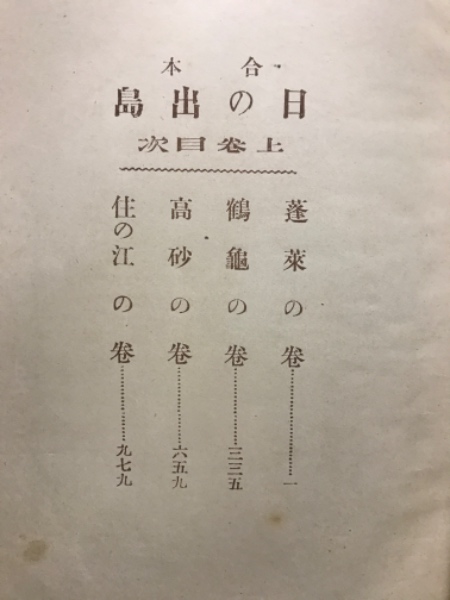 合本
日の出島
上卷目次
蓬萊の卷………………一
鶴龜の卷…………三三五
高砂の卷…………六五九
住の江の卷…………九七九